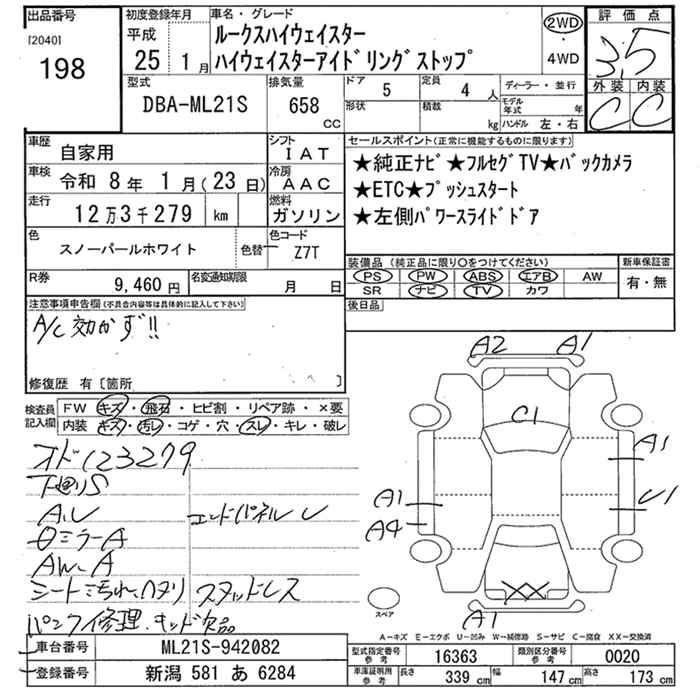 出品番号
[2040]
198
初度登録年月
平成
25 1月
車名・グレード
ルークスハイウェイスター
ハイウェイスターアイドリングストップ
2WD
・
4WD
評価点
3.5
外装 内装
C C
型式
DBA-ML21S
排気量
658
CC
ドア
5
定員
4 人
形状
積載
kg
ディーラー・並行
モデル
年式 年
ハンドル 左・右
車歴
自家用
シフト
IAT
車検
令和 8年 1月(23日)
冷房
AAC
走行
12万3千279 km
燃料
ガソリン
色
スノーパールホワイト
色替
色コード
Z7T
R券
9,460円
名変通知期限
月 日
セールスポイント(正常に機能するものに限ります)
★純正ナビ★フルセグTV★バックカメラ
★ETC★プッシュスタート
★左側パワースライドドア
装備品(純正品に限り○をつけてください)
PS PW ABS エアB AW
SR ナビ TV カワ
新車保証書
有・無
後日品
注意事項申告欄(不具合内容等は具体的に記入して下さい)
A/C効かず!!
修復歴 有[箇所 ]
検査員
記入欄
FW キズ・飛石・ヒビ割・リペア跡・×要
内装 キズ・汚レ・コゲ・穴・スレ・キレ・破レ
オド123279
下廻りS
A,U エンドパネルU
ミラーA
AW、A
シート汚れ、ヘタリ スタッドレス
パンク修理キット欠品
A2 A1
C1
A1
A1 U1
A4
A1
スペア
A-キズ E-エクボ U-凹み W-補修跡 S-サビ C-腐食 XX-交換済
車台番号
ML21S-942082
登録番号
新潟 581 あ 6284
型式指定番号
参考
16363
類別区分番号
参考
0020
車庫証明用
参考
長さ 339 cm
幅 147 cm
高さ 173 cm